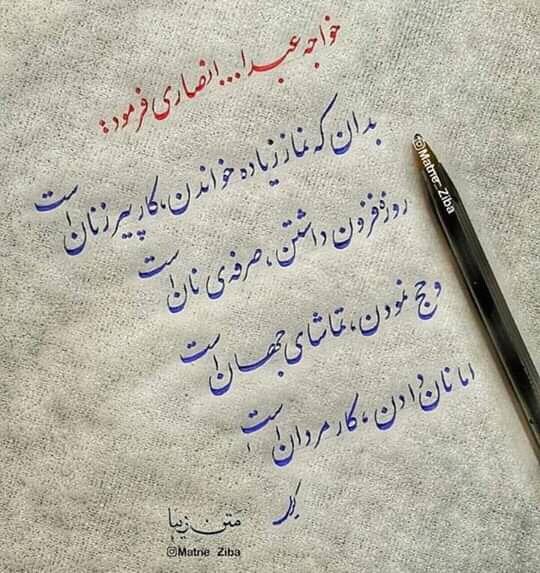 خواجه عبدا... انصاری فرمود:
بدان که نماز زیاده خواندن، کار پیرزنان است
روزه فزون داشتن، صرفه‌ی نان است
و حج نمودن، تماشای جهان است
اما نان دادن، کار مردان است
متن زیبا
@Matne_Ziba
@Matne_Ziba